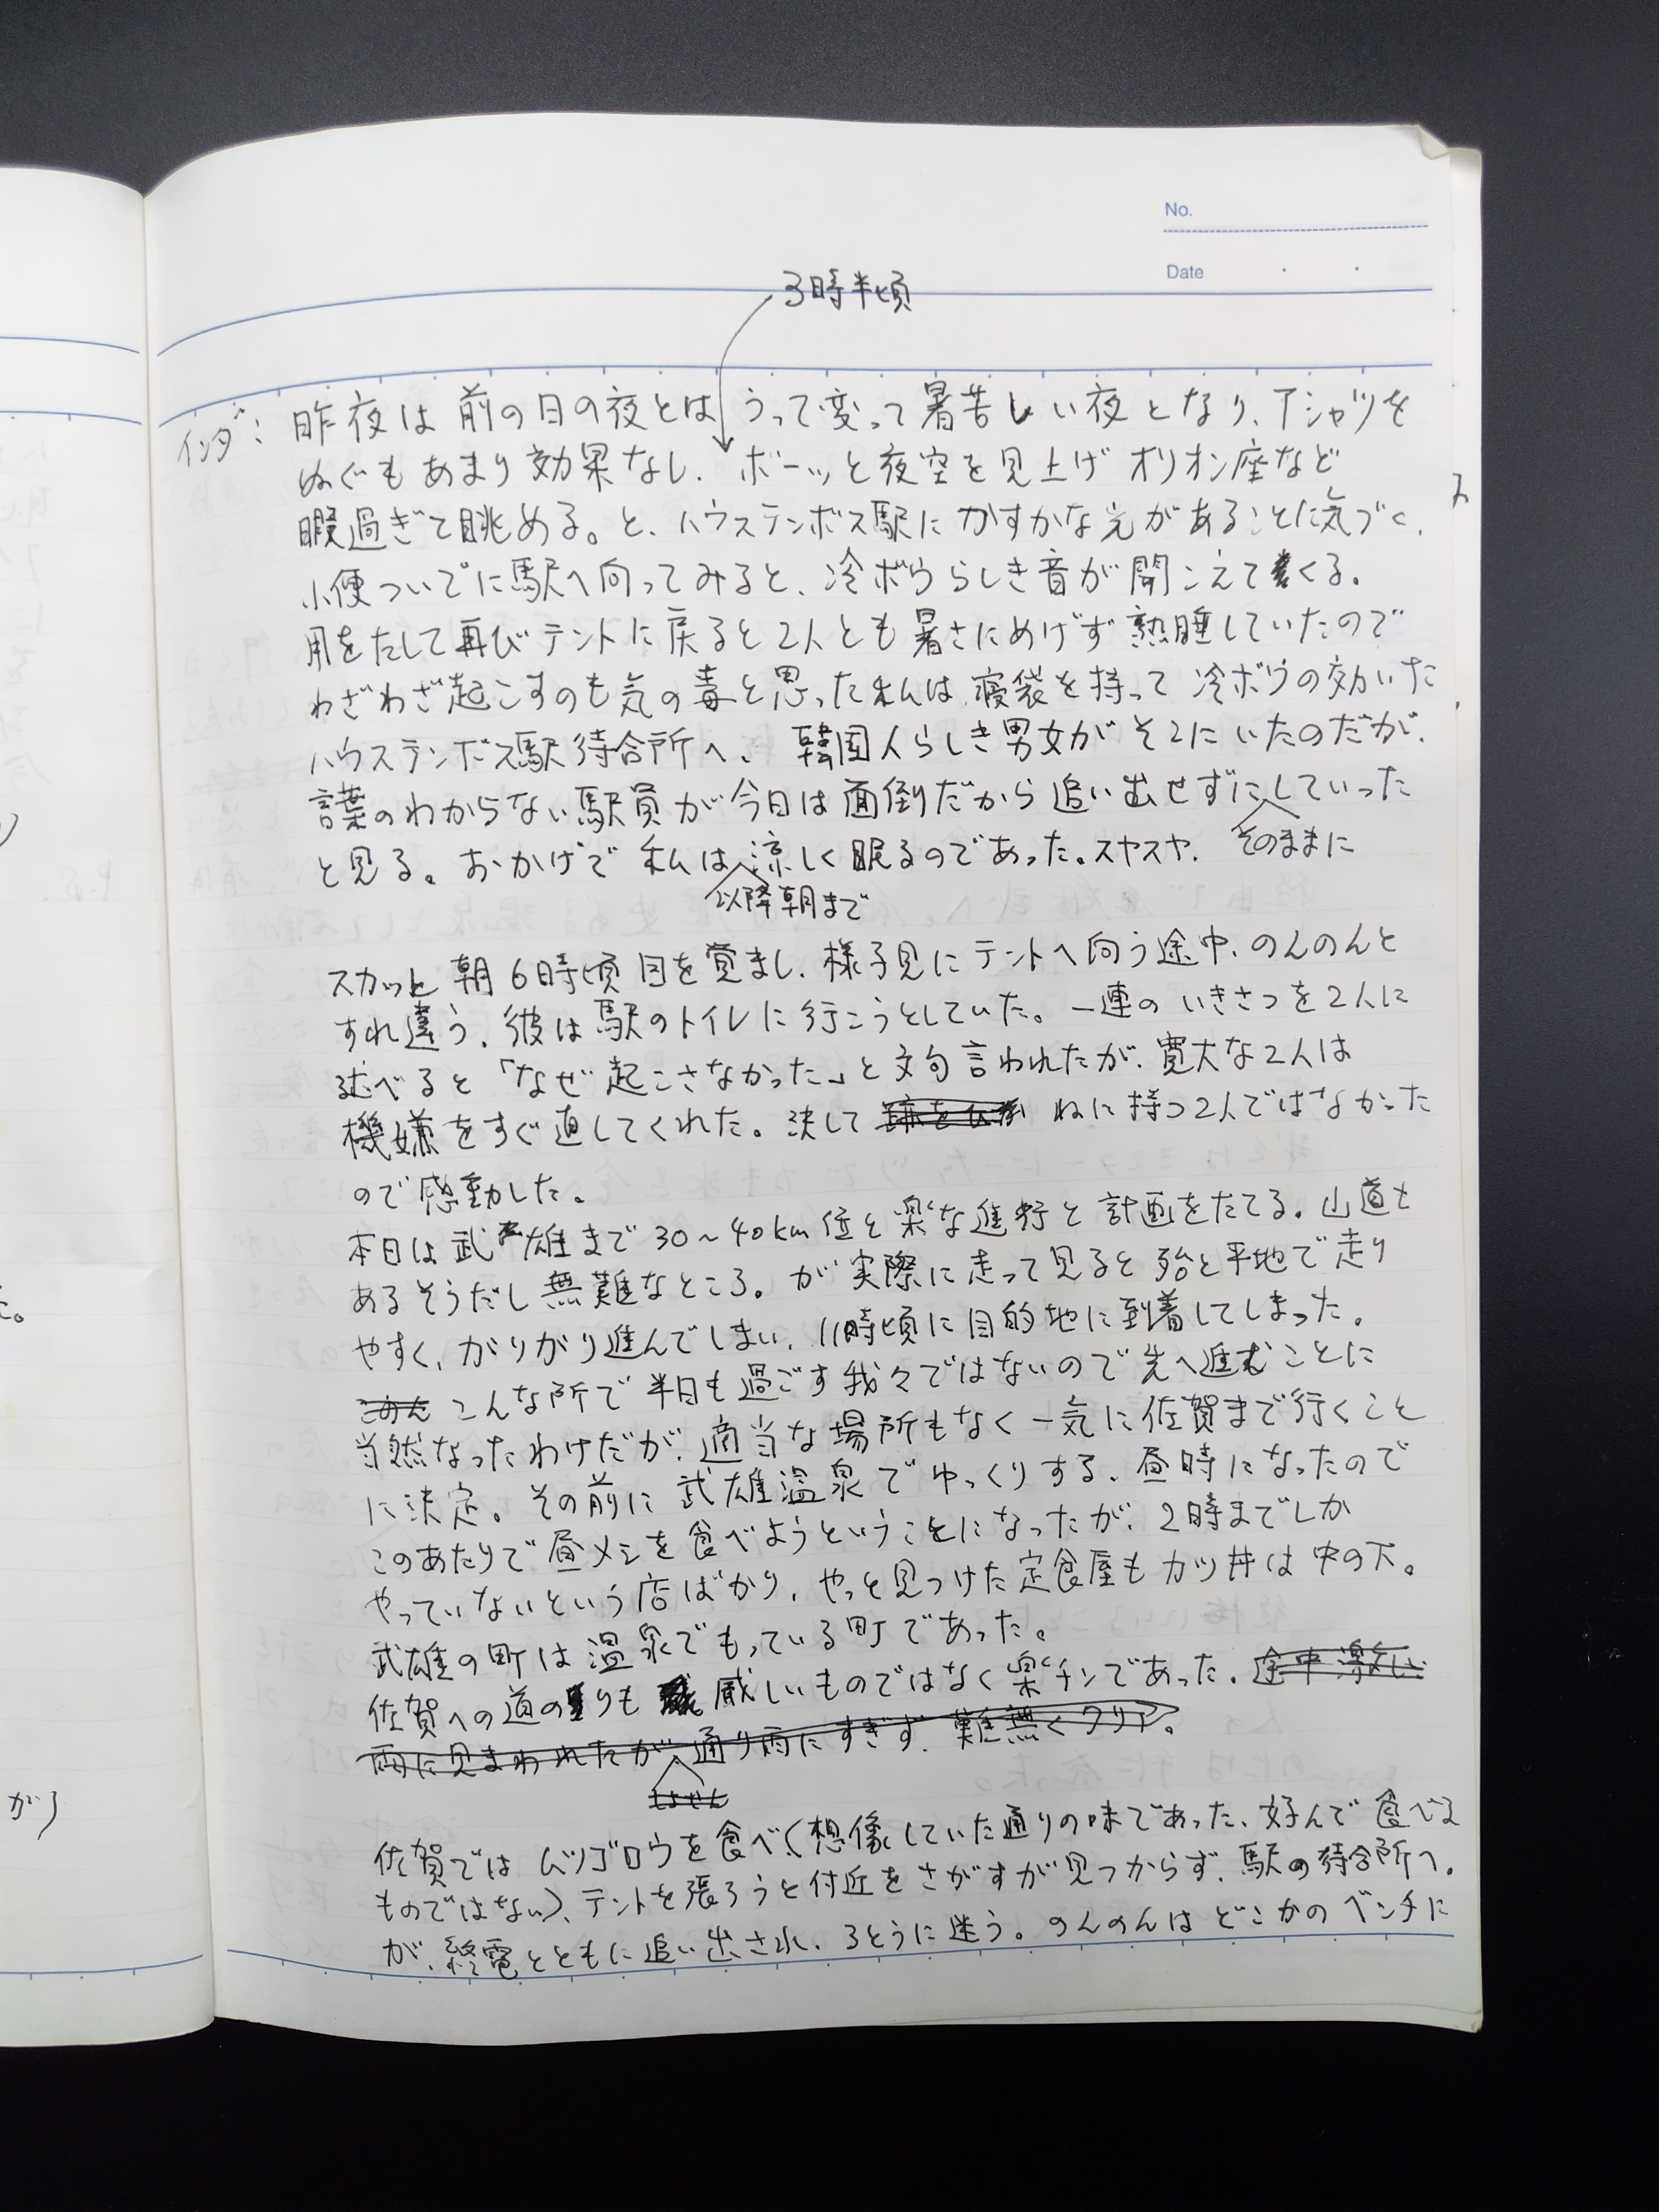 No.
Date
3時半頃
インダ: 昨夜は前の日の夜とはうって変って暑苦しい夜となり、Tシャツを
ぬぐもあまり効果なし、ボーッと夜空を見上げオリオン座など
暇過ぎて眺める。と、ハウステンボス駅にかすかな光があることに気づく、
小便ついでに駅へ向ってみると、冷ボウらしき音が聞こえてくる。
用をたして再びテントに戻ると2人とも暑さにめげず熟睡していたので
わざわざ起こすのも気の毒と思った私は寝袋を持って冷ボウの効いた
ハウステンボス駅待合所へ、韓国人らしき男女がそこにいたのだが、
言葉のわからない駅員が今日は面倒だから追い出せずにしていった
と見る。おかげで私は涼しく眠るのであった。スヤスヤ、そのままに
以降朝まで
スカッと朝6時頃目を覚まし、様子見にテントへ向う途中、のんのんと
すれ違う、彼は駅のトイレに行こうとしていた。一連のいきさつを2人に
述べると「なぜ起こさなかった」と文句言われたが、寛大な2人は
機嫌をすぐ直してくれた。決して ねに持つ2人ではなかった
ので感動した。
本日は武雄まで30~40km位と楽な進行と計画をたてる。山道も
あるそうだし無難なところ。が実際に走って見ると殆と平地で走り
やすく、がりがり進んでしまい、11時頃に目的地に到着してしまった。
こんな所で半日も過ごす我々ではないので先へ進むことに
当然なったわけだが、適当な場所もなく一気に佐賀まで行くこと
に決定。その前に武雄温泉でゆっくりする、昼時になったので
このあたりで昼メシを食べようということになったが、2時までしか
やっていないという店ばかり、やっと見つけた定食屋もカツ丼は中の下。
武雄の町は温泉でもっている町であった。
佐賀への道のりも 厳しいものではなく楽チンであった、途中激しい
雨に見まわれたが通り雨にすぎず、難無くクリア。
佐賀ではムツゴロウを食べ(想像していた通りの味であった、好んで食べる
ものではない)、テントを張ろうと付近をさがすが見つからず、駅の待合所へ。
が、終電とともに追い出され、ろとうに迷う。のんのんはどこかのベンチに